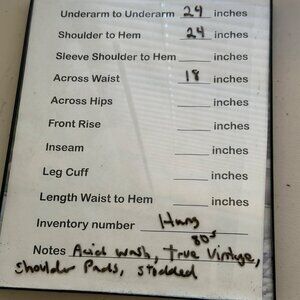 Underarm to Underarm 24 inches
Shoulder to Hem 24 inches
Sleeve Shoulder to Hem inches
Across Waist 18 inches
Across Hips inches
Front Rise inches
Inseam inches
Leg Cuff inches
Length Waist to Hem inches
Inventory number Hang
80s
Notes Acid wash, True Vintage,
Shoulder Pads, Studded